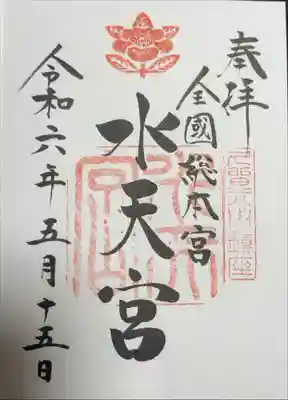 奉拝
全國総本宮
水天宮
令和六年五月十五日